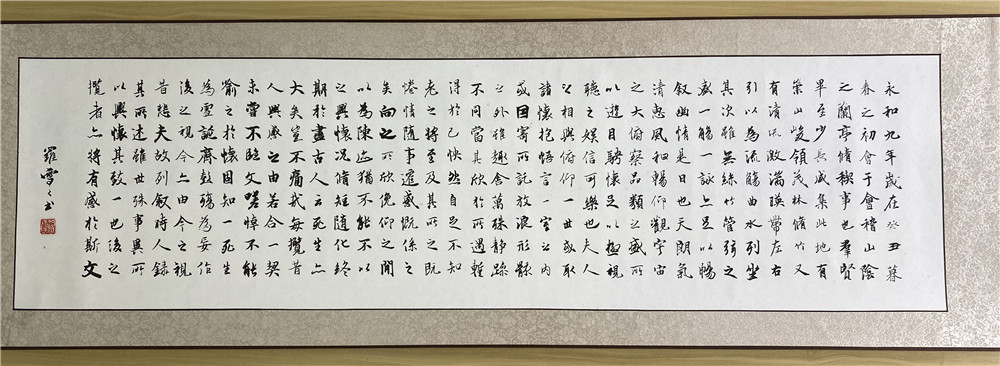 永和九年歲在癸丑暮
春之初會于會稽山陰
之蘭亭脩稧事也羣賢
畢至少長咸集此地有
崇山峻領茂林脩竹又
有清流激湍暎帶左右
引以為流觴曲水列坐
其次雖無絲竹管弦之
盛一觴一詠亦足以暢
敘幽情是日也天朗氣
清惠風和暢仰觀宇宙
之大俯察品類之盛所
以遊目騁懷足以極視
聽之娛信可樂也夫人
之相與俯仰一世或取
諸懷抱悟言一室之內
或因寄所託放浪形骸
之外雖趣舍萬殊靜躁
不同當其欣於所遇蹔
得於己怏然自足不知
老之將至及其所之既
惓情隨事遷感慨係之
矣向之所欣俛仰之閒
以為陳迹猶不能不以
之興懷況脩短隨化終
期於盡古人云死生亦
大矣豈不痛哉每攬昔
人興感之由若合一契
未嘗不臨文嗟悼不能
喻之於懷固知一死生
為虛誕齊彭殤為妄作
後之視今亦由今之視
昔悲夫故列敘時人錄
其所述雖世殊事異所
以興懷其致一也後之
攬者亦將有感於斯文
羅雪書